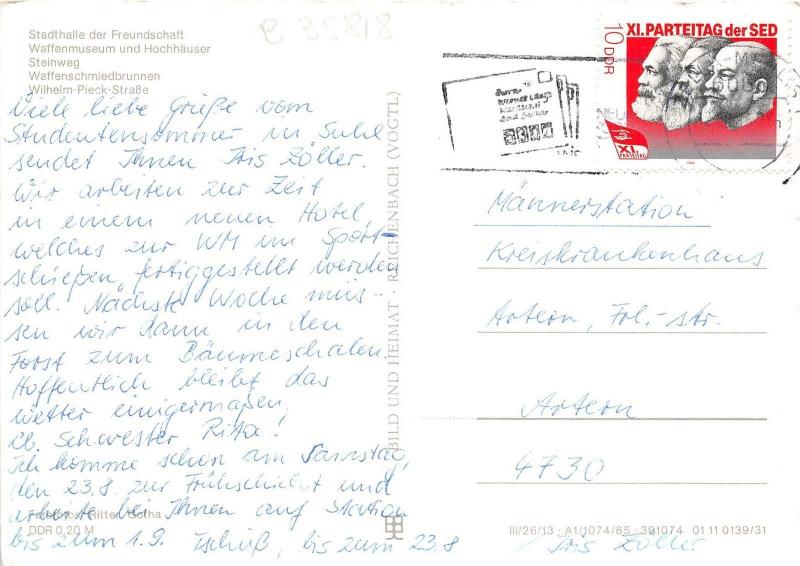 B 35818
Stadthalle der Freundschaft
Waffenmuseum und Hochhäuser
Steinweg
Waffenschmiedbrunnen
Wilhelm-Pieck-Straße
Viele liebe Grüße vom
Studentensommer in Suhl
sendet Ihnen Iris Zöller.
Wir arbeiten zur Zeit
in einem neuen Hotel,
welches zur WM im Sport-
schießen, fertiggestellt werden
soll. Nächste Woche müs-
sen wir dann in den
Forst zum Bäumeschälen.
Hoffentlich bleibt das
Wetter einigermaßen,
lb. Schwester Rita!
Ich komme schon am Samstag,
den 23.8. zur Frühschicht und
arbeite bei Ihnen auf Station
bis zum 1.9. Tschüß, bis zum 23.8
/ Iris Zöller
Ritter, Gotha
DDR 0,20 M
BILD UND HEIMAT · REICHENBACH (VOGTL)
XI. PARTEITAG der SED
10 DDR
XI.
PARTEITAG
Männerstation
Kreiskrankenhaus
Artern, Frl.-str.
Artern
4730
III/26/13 · A1/1074/85 · 301074 01 11 0139/31